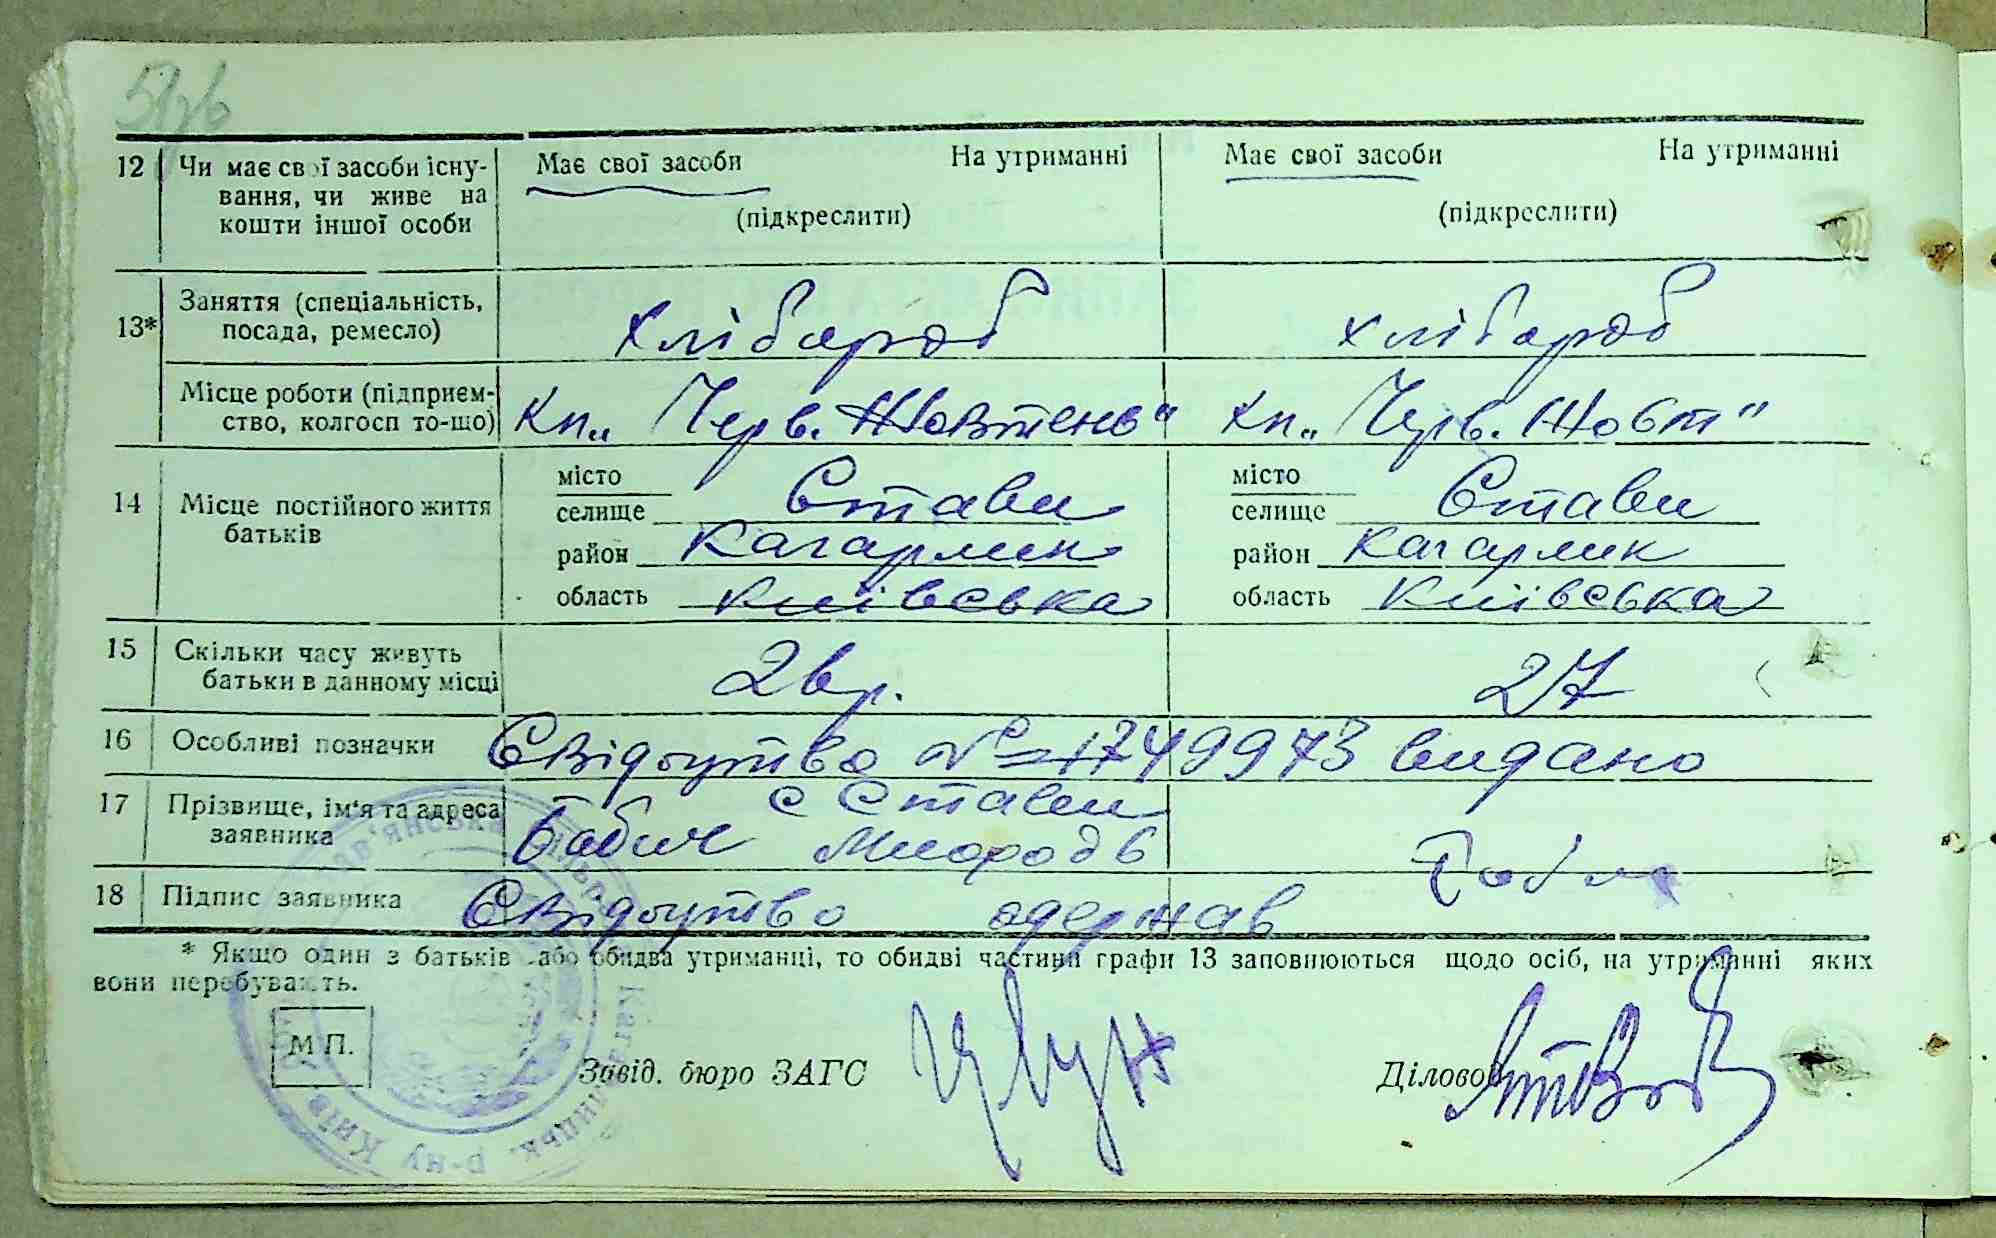 12 Чи має свої засоби існу- Має свої засоби На утриманні Має свої засоби На утриманні
вання, чи живе на
кошти іншої особи (підкреслити) (підкреслити)
13* Заняття (спеціальність,
посада, ремесло) хлібароб хлібароб
Місце роботи (підприєм-
ство, колгосп то-що) Кп „Черв. Жовтень“ Кп „Черв. Жовт“
місто місто
14 Місце постійного життя селище Стави селище Стави
батьків район Кагарлик район Кагарлик
область Київська область Київська
15 Скільки часу живуть
батьки в данному місці 26 р. 27
16 Особливі позначки Свідоцтво № 1749973 видано
17 Прізвище, ім'я та адреса с Стави
заявника Бабич
18 Підпис заявника Свідоцтво одержав
* Якщо один з батьків або обидва утриманці, то обидві частини графи 13 заповнюються щодо осіб, на утриманні яких
вони перебувають.
М П.
Завід. бюро ЗАГС Діловод